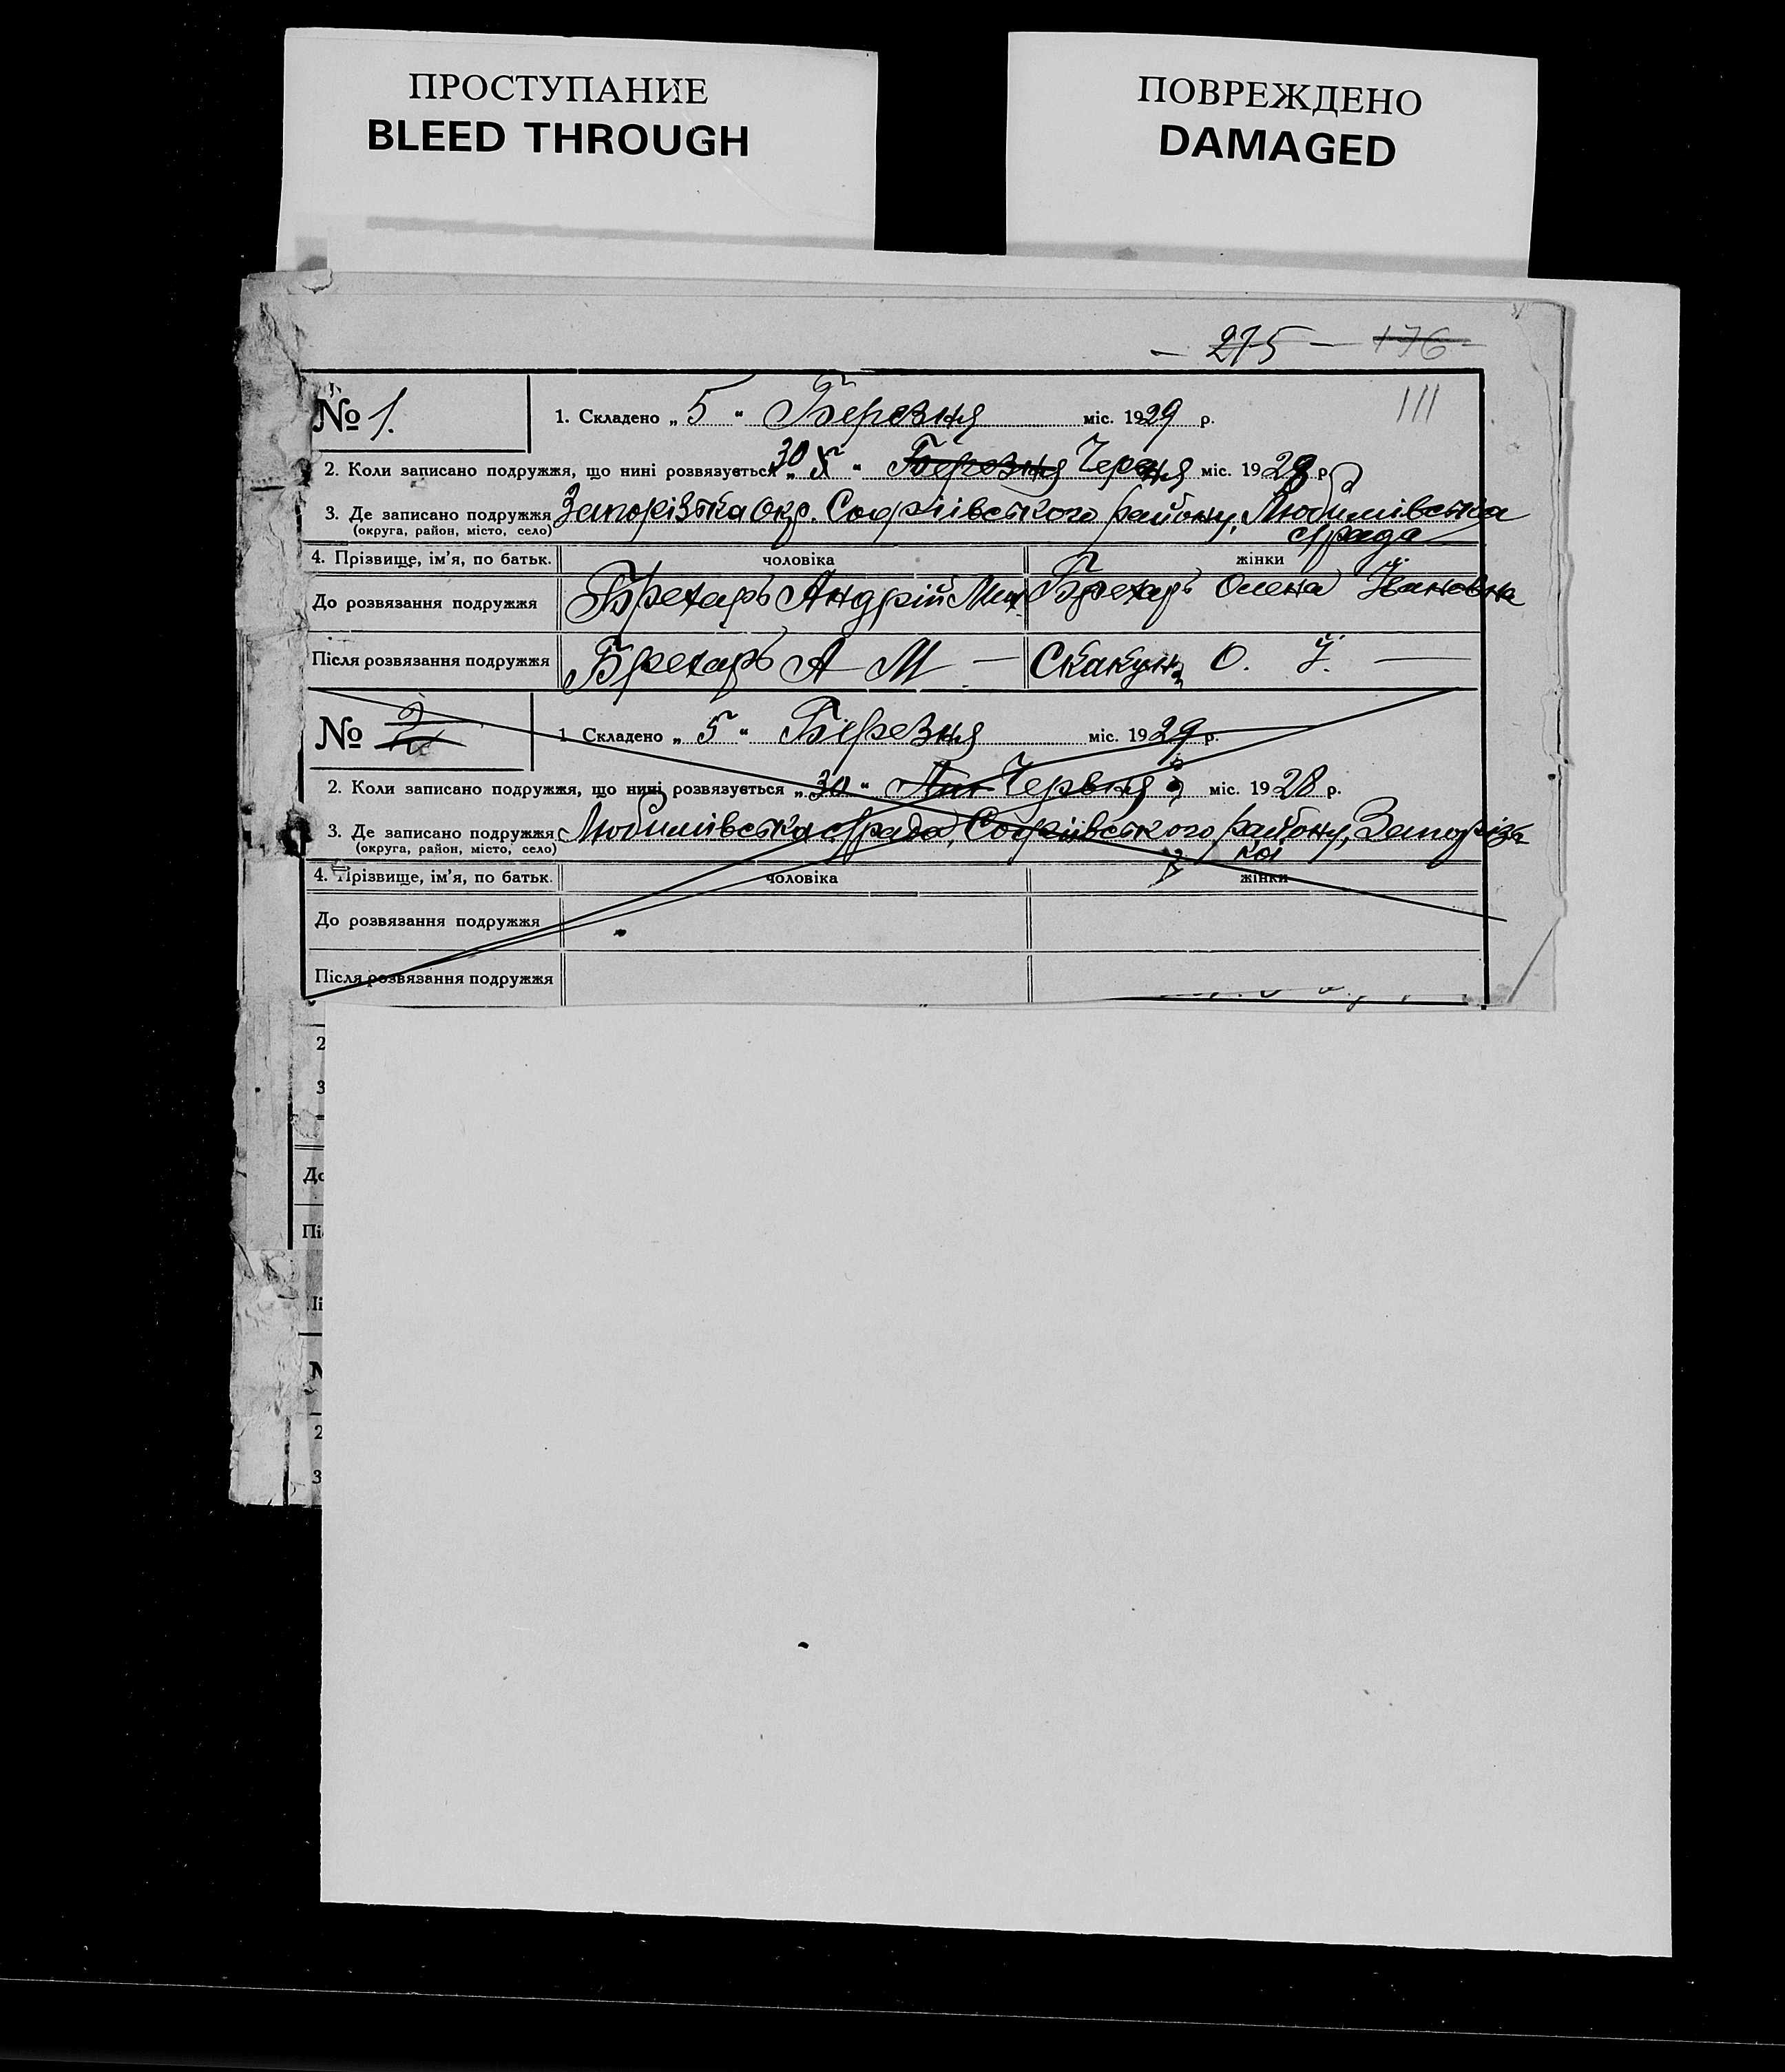 ПРОСТУПАНИЕ
BLEED THROUGH
ПОВРЕЖДЕНО
DAMAGED
— 275 — 176 -
№ 1.
1. Складено „ 5 “ Березня міс. 1929 р.
111
2. Коли записано подружжя, що нині розвязується „ 30 “ Березня Червня міс. 1928 р.
3. Де записано подружжя Запорізька Окр. Софіївського району, Любимівська
(округа, район, місто, село)
с/рада
4. Прізвище, ім’я, по батьк. чоловіка жінки
До розвязання подружжя Брехарь Андрій Мих Брехарь Олена Івановна
Після розвязання подружжя Брехарь А М — Скакун О. І. —
№ 2
1. Складено „ 5 “ Березня міс. 1929 р.
2. Коли записано подружжя, що нині розвязується „ 30 “ Червня міс. 1928 р.
3. Де записано подружжя Любимівська с/рада, Софіївського району, Запоріза
(округа, район, місто, село)
кої
4. Прізвище, ім’я, по батьк. чоловіка жінки
До розвязання подружжя
Після розвязання подружжя
2
3
До
Пі
2
3